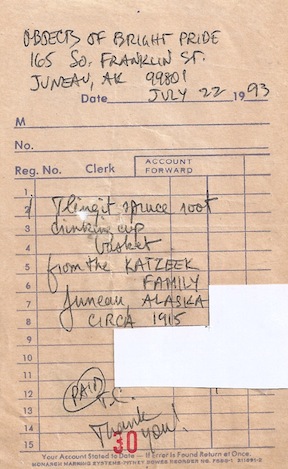 OBJECTS OF BRIGHT PRIDE
165 SO. FRANKLIN ST.
JUNEAU, AK 99801
Date JULY 22 1993
M
No.
Reg. No. Clerk ACCOUNT FORWARD
1
2 Tlingit spruce root
3 drinking cup
4 basket
5 from the KATZEEK
6 FAMILY
7 Juneau, ALASKA
8 CIRCA 1915
9
10
11
12 PAID
13 T.C.
14 Thank
15 30 you!
Your Account Stated to Date — If Error is Found Return at Once.
MONARCH MARKING SYSTEMS-PITNEY BOWES REORDER NO.